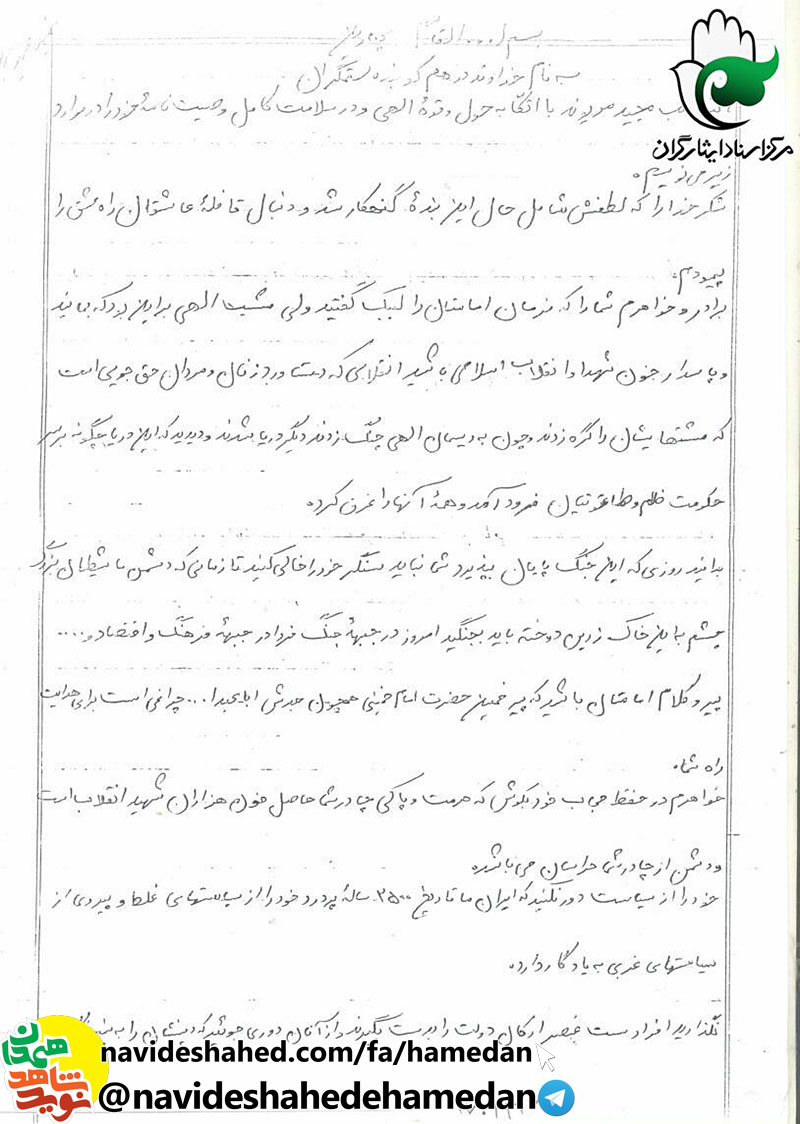 مرکز اسناد ایثارگران
به نام خداوند درهم کوبنده ستمگران
مجید با اتکا به حول و قوة الهی و در سلامت کامل وصیت نامهٔ خود را در موارد
زیر می نویسم.
شکر خدا را که لطفش شامل حال این بندهٔ گنهکار شد و دنبال قافلهٔ عاشقان راه عشق را
پیمودم.
برادر و خواهرم شما را که فرمان امامتان را لبیک گفتید ولی مشیت الهی بر این بود که بمانید
و پاسدار خون شهدا و انقلاب اسلامی باشید انقلابی که دستاورد زنان و مردان حق جویی است
که مشتهایشان را گره زدند و چون به ریسمان الهی چنگ زدند دیگر دریا شدند و دیدید که این دریا چگونه بر سر
حکومت ظلم و طاغوتیان فرود آمد و همهٔ آنها را غرق کرد.
بدانید روزی که این جنگ پایان پذیرد شما نباید سنگر خود را خالی کنید تا زمانی که دشمن ما شیطان بزرگ
چشم به این خاک زرین دوخته باید بجنگید امروز در جبههٔ جنگ فردا در جبههٔ فرهنگ و اقتصاد و ....
پیرو کلام امامتان باشید که پیر خمین حضرت امام خمینی همچون جدش اباعبدا... چراغی است برای هدایت
راه شما.
خواهرم در حفظ حجاب خود بکوش که حرمت و پاکی چادر شما حاصل خون هزاران شهید انقلاب است
و دشمن از چادر شما حراسان می باشد.
خود را از سیاست دور نکنید که ایران ما تاریخ ۲۵۰۰ سالهٔ پر درد خود را از سیاستهای غلط و پیروی از
سیاستهای غربی به یادگار دارد.
نگذارید افراد سست عنصر ارکان دولت را بدست بگیرند و از آنان دوری جوئید که دینشان را به
نوید شاهد همدان
navideshahed.com/fa/hamedan
@navideshahedehamedan